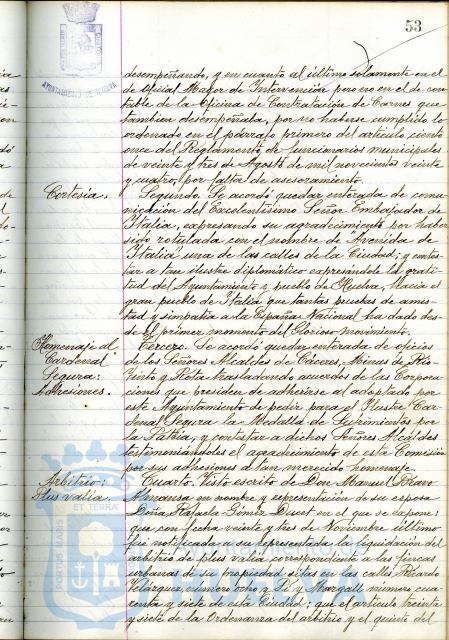 53
AYUNTAMIENTO DE HUELVA
desempeñando, y en cuanto al último solamente en el
de Oficial Mayor de Intervención pero no en el de con-
table de la Oficina de Contratación de Carnes que
tambien desempeñada, por no haberse cumplido lo
ordenado en el párrafo primero del artículo ciento
once del Reglamento de funcionarios municipales
de veinte y tres de Agosto de mil novecientos veinte
y cuatro, por falta de asesoramiento.
Cortesía.
Segundo. Se acordó quedar enterada de comu-
nicación del Excelentísimo Señor Embajador de
Italia, expresando su agradecimiento por haber
sido rotulada con el nombre de "Avenida de
Italia" una de las calles de la Ciudad; y contes-
tar a tan ilustre diplomático expresándole la grati-
tud del Ayuntamiento y pueblo de Huelva, hacia el
gran pueblo de Italia que tantas pruebas de amis-
tad y simpatía a la España Nacional ha dado des-
de el primer momento del Glorioso movimiento.
Homenaje al
Cardenal
Segura:
Adhesiones.
Tercero. Se acordó quedar enterada de oficios
de los Señores Alcaldes de Cáceres, Minas de Rio-
tinto y Rota trasladando acuerdos de las Corpora-
ciones que presiden de adherirse al adoptado por
este Ayuntamiento de pedir para el Ilustre Car-
denal Segura la Medalla de Sufrimientos por
la Patria; y contestar a dichos Señores Alcaldes
testimoniándoles el agradecimiento de esta Comisión
por sus adhesiones a tan merecido homenaje.
Arbitrio:
Plus valia.
Cuarto. Visto escrito de Don Manuel Bravo
Almansa en nombre y representación de su esposa
Doña Rafaela Gómez Duset en el que se expone:
que con fecha veinte y tres de Noviembre último
fué notificada a su representada la liquidación del
arbitrio de plus valia correspondiente a las fincas
urbanas de su propiedad sitas en las calles Ricardo
Velázquez número ocho y Pí y Margall número cua-
renta y siete de esta Ciudad; que el artículo treinta
y siete de la Ordenanza del arbitrio y el quinto del